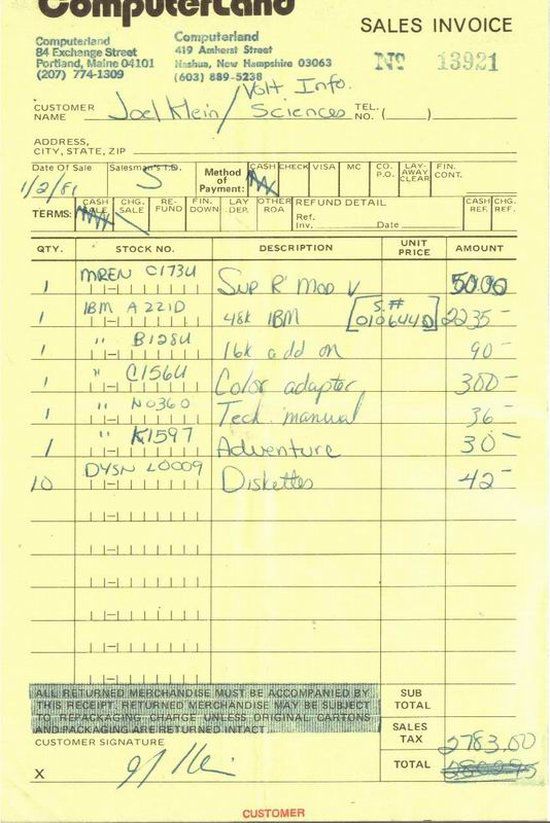 ComputerLand
SALES INVOICE
Computerland
84 Exchange Street
Portland, Maine 04101
(207) 774-1309
Computerland
419 Amherst Street
Nashua, New Hampshire 03063
(603) 889-5238
Nº 13921
CUSTOMER NAME Joel Klein / Volt Info. Sciences TEL. NO. ( )
ADDRESS, CITY, STATE, ZIP
Date Of Sale Salesman's I.D. Method of Payment: CASH CHECK VISA MC CO. P.O. LAY-AWAY CLEAR FIN. CONT.
S
TERMS: CASH SALE CHG. SALE RE-FUND FIN. DOWN LAY DEP. OTHER ROA REFUND DETAIL CASH REF. CHG. REF.
Ref. Inv. Date
QTY. STOCK NO. DESCRIPTION UNIT PRICE AMOUNT
1 MREN C173U Sup R' Mod V 50.00
1 IBM A221D 48k IBM S.# 0106440 2235-
1 " B128U 16k add on 90-
1 " C156U Color adapter 300-
1 " N0360 Tech. manual 36-
1 " K1597 Adventure 30-
10 DYSN L0009 Diskettes 42-
ALL RETURNED MERCHANDISE MUST BE ACCOMPANIED BY
THIS RECEIPT. RETURNED MERCHANDISE MAY BE SUBJECT
TO REPACKAGING CHARGE UNLESS ORIGINAL CARTONS
AND PACKAGING ARE RETURNED INTACT.
SUB TOTAL
SALES TAX 2783.00
TOTAL
CUSTOMER SIGNATURE
X
CUSTOMER